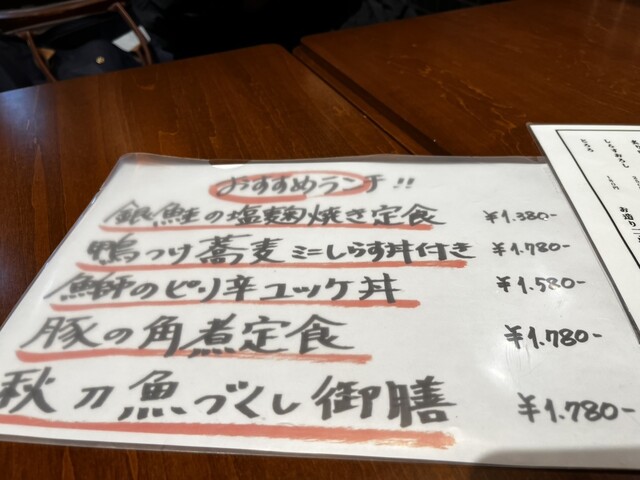 おすすめランチ!!
銀鮭の塩麹焼き定食 ¥1.380-
鴨つけ蕎麦 ミニしらす丼付き ¥1.780-
鰤のピリ辛ユッケ丼 ¥1.580-
豚の角煮定食 ¥1.780-
秋刀魚づくし御膳 ¥1.780-
しらすおろし
お造り